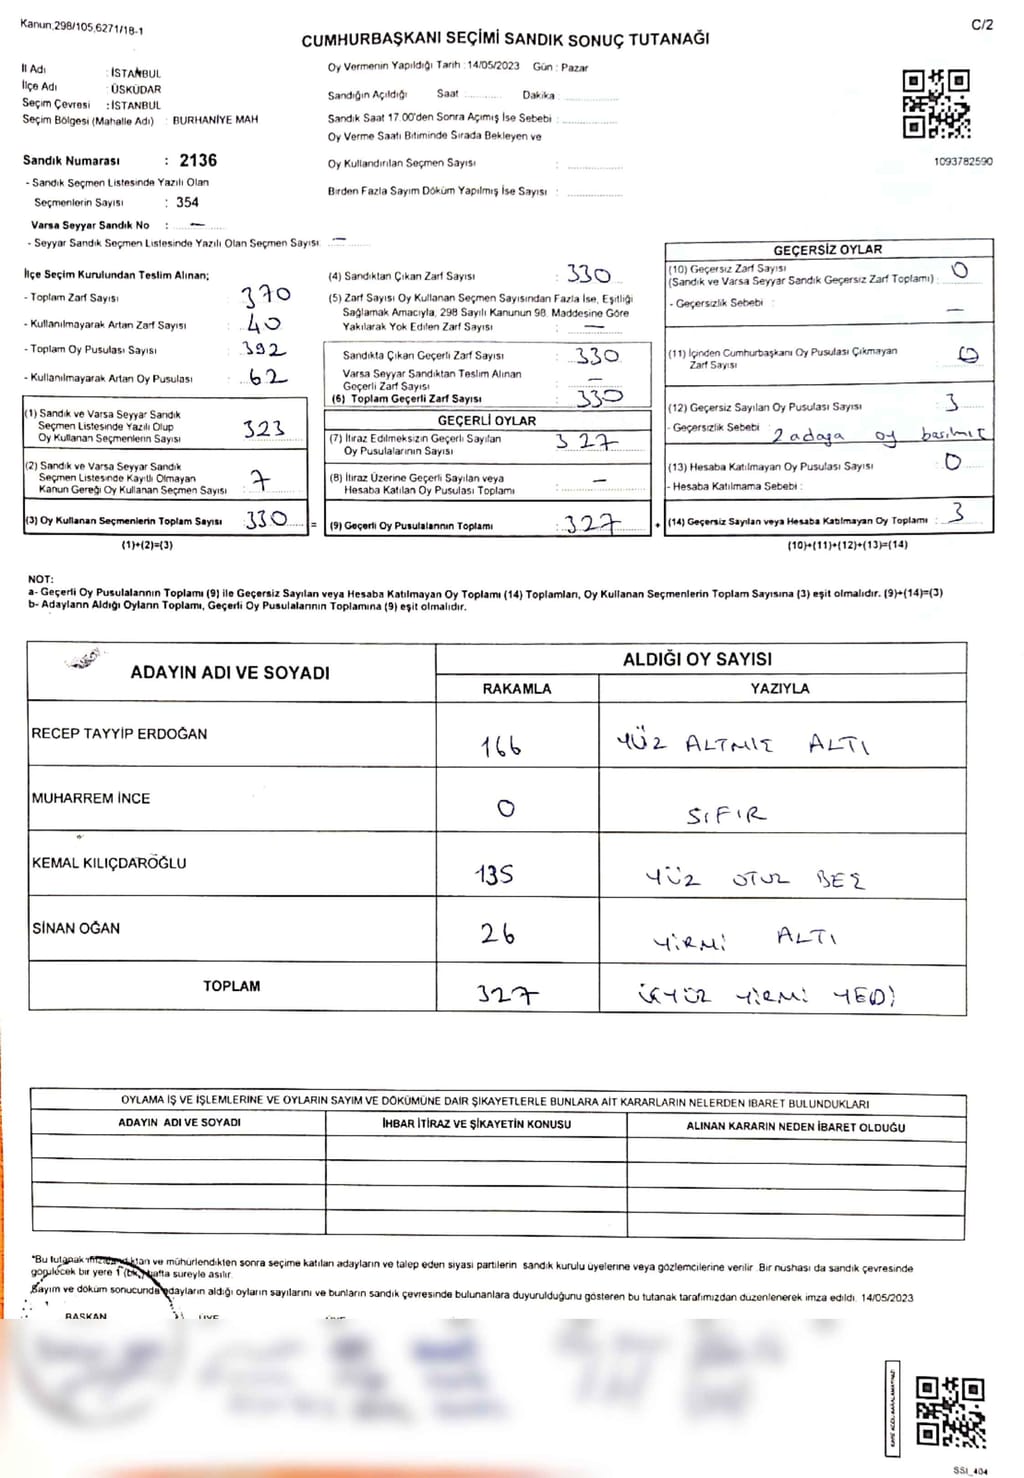 Kanun,298/105,6271/18-1
C/2
CUMHURBAŞKANI SEÇİMİ SANDIK SONUÇ TUTANAĞI
İl Adı : İSTANBUL
İlçe Adı : ÜSKÜDAR
Seçim Çevresi : İSTANBUL
Seçim Bölgesi (Mahalle Adı) : BURHANİYE MAH
Sandık Numarası : 2136
- Sandık Seçmen Listesinde Yazılı Olan
Seçmenlerin Sayısı : 354
Varsa Seyyar Sandık No : —
- Seyyar Sandık Seçmen Listesinde Yazılı Olan Seçmen Sayısı : —
Oy Vermenin Yapıldığı Tarih : 14/05/2023 Gün : Pazar
Sandığın Açıldığı Saat : Dakika :
Sandık Saat 17.00'den Sonra Açımış İse Sebebi :
Oy Verme Saati Bitiminde Sırada Bekleyen ve
Oy Kullandırılan Seçmen Sayısı :
Birden Fazla Sayım Döküm Yapılmış İse Sayısı :
1093782590
İlçe Seçim Kurulundan Teslim Alınan;
- Toplam Zarf Sayısı : 370
- Kullanılmayarak Artan Zarf Sayısı : 40
- Toplam Oy Pusulası Sayısı : 392
- Kullanılmayarak Artan Oy Pusulası : 62
(1) Sandık ve Varsa Seyyar Sandık
Seçmen Listesinde Yazılı Olup
Oy Kullanan Seçmenlerin Sayısı : 323
(2) Sandık ve Varsa Seyyar Sandık
Seçmen Listesinde Kayıtlı Olmayan
Kanun Gereği Oy Kullanan Seçmen Sayısı : 7
(3) Oy Kullanan Seçmenlerin Toplam Sayısı : 330 =
(1)+(2)=(3)
(4) Sandıktan Çıkan Zarf Sayısı : 330
(5) Zarf Sayısı Oy Kullanan Seçmen Sayısından Fazla İse, Eşitliği
Sağlamak Amacıyla, 298 Sayılı Kanunun 98. Maddesine Göre
Yakılarak Yok Edilen Zarf Sayısı : —
Sandıkta Çıkan Geçerli Zarf Sayısı : 330
Varsa Seyyar Sandıktan Teslim Alınan
Geçerli Zarf Sayısı : —
(6) Toplam Geçerli Zarf Sayısı : 330
GEÇERLİ OYLAR
(7) İtiraz Edilmeksizin Geçerli Sayılan
Oy Pusulalarının Sayısı : 327
(8) İtiraz Üzerine Geçerli Sayılan veya
Hesaba Katılan Oy Pusulası Toplamı : —
(9) Geçerli Oy Pusulalarının Toplamı : 327 +
GEÇERSİZ OYLAR
(10) Geçersiz Zarf Sayısı
(Sandık ve Varsa Seyyar Sandık Geçersiz Zarf Toplamı) : 0
- Geçersizlik Sebebi : —
(11) İçinden Cumhurbaşkanı Oy Pusulası Çıkmayan
Zarf Sayısı : 0
(12) Geçersiz Sayılan Oy Pusulası Sayısı : 3
- Geçersizlik Sebebi : 2 adaya oy basılmış
(13) Hesaba Katılmayan Oy Pusulası Sayısı : 0
- Hesaba Katılmama Sebebi :
(14) Geçersiz Sayılan veya Hesaba Katılmayan Oy Toplamı : 3
(10)+(11)+(12)+(13)=(14)
NOT:
a- Geçerli Oy Pusulalarının Toplamı (9) ile Geçersiz Sayılan veya Hesaba Katılmayan Oy Toplamı (14) Toplamları, Oy Kullanan Seçmenlerin Toplam Sayısına (3) eşit olmalıdır. (9)+(14)=(3)
b- Adayların Aldığı Oyların Toplamı, Geçerli Oy Pusulalarının Toplamına (9) eşit olmalıdır.
ADAYIN ADI VE SOYADI ALDIĞI OY SAYISI
RAKAMLA YAZIYLA
RECEP TAYYİP ERDOĞAN 166 YÜZ ALTMIŞ ALTI
MUHARREM İNCE 0 SIFIR
KEMAL KILIÇDAROĞLU 135 YÜZ OTUZ BEŞ
SİNAN OĞAN 26 YİRMİ ALTI
TOPLAM 327 ÜÇYÜZ YİRMİ YEDİ
OYLAMA İŞ VE İŞLEMLERİNE VE OYLARIN SAYIM VE DÖKÜMÜNE DAİR ŞİKAYETLERLE BUNLARA AİT KARARLARIN NELERDEN İBARET BULUNDUKLARI
ADAYIN ADI VE SOYADI İHBAR İTİRAZ VE ŞİKAYETİN KONUSU ALINAN KARARIN NEDEN İBARET OLDUĞU
*Bu tutanak ve mühürlendikten sonra seçime katılan adayların ve talep eden siyasi partilerin sandık kurulu üyelerine veya gözlemcilerine verilir. Bir nushası da sandık çevresinde
görülecek bir yere 1 (bir) hafta süreyle asılır.
Sayım ve döküm sonucunda adayların aldığı oyların sayılarını ve bunların sandık çevresinde bulunanlara duyurulduğunu gösteren bu tutanak tarafımızdan düzenlenerek imza edildi. 14/05/2023
BAŞKAN ÜYE ÜYE
SSI_404